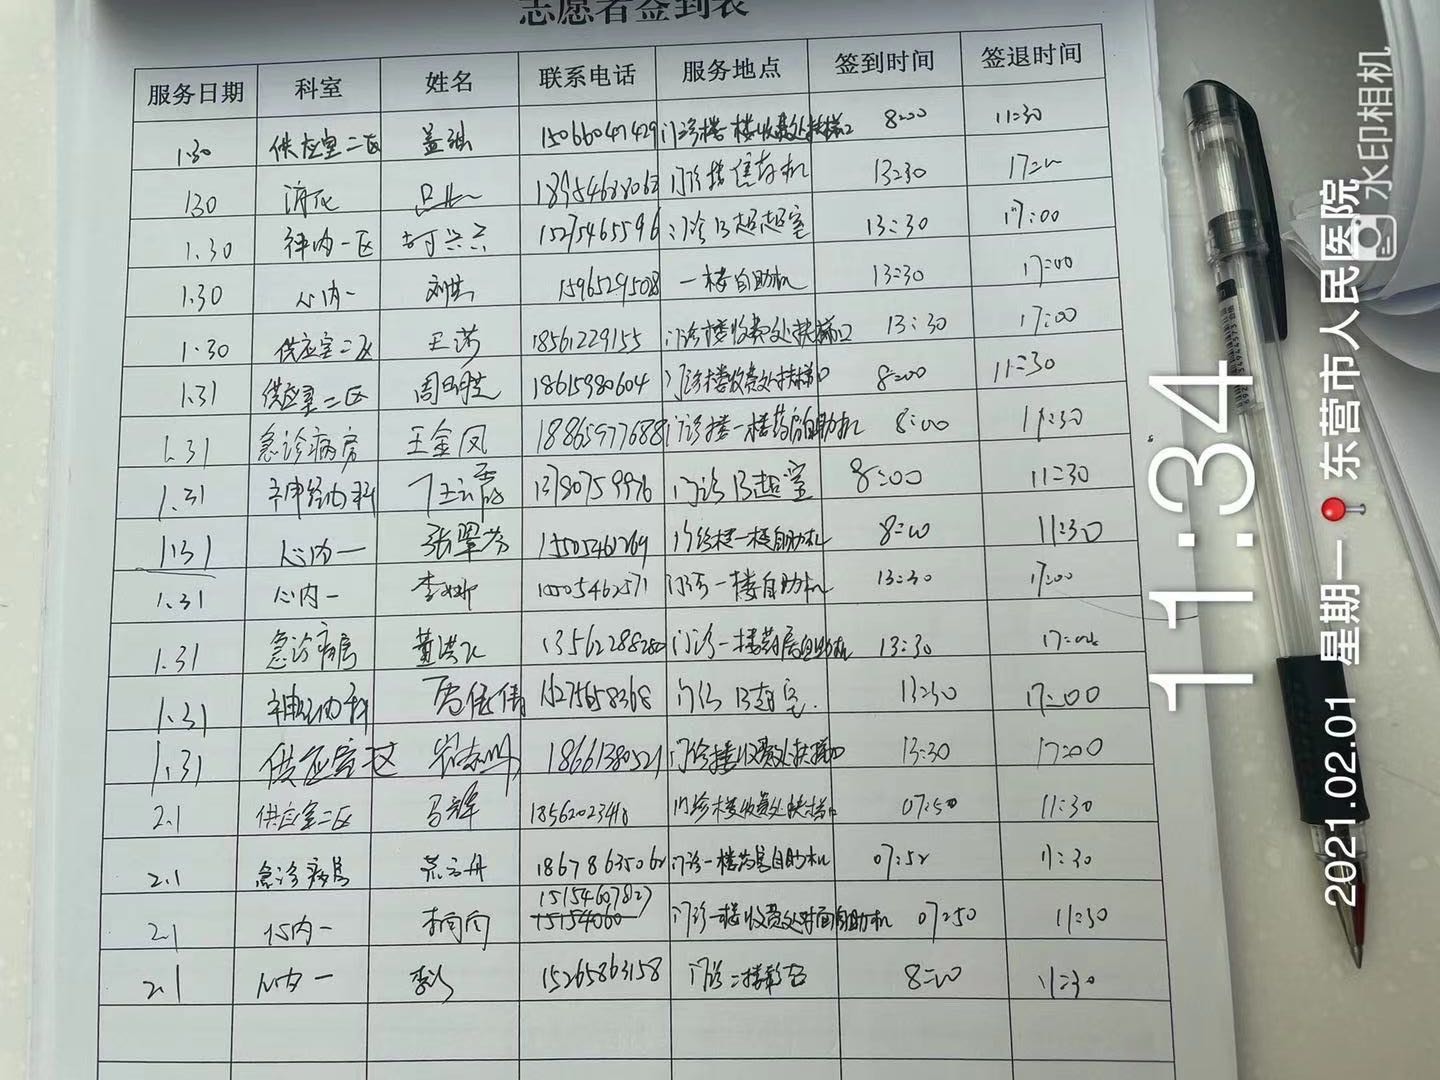 志愿者签到表
服务日期 科室 姓名 联系电话 服务地点 签到时间 签退时间
1.30 供应室二区 15066047429 门诊楼一楼收费处扶梯口 8:00 11:30
1.30 消化 门诊楼 13:30
1.30 神内一区 15275465596 门诊B超室 13:30 17:00
1.30 心内一 15965295028 一楼自助机 13:30 17:00
1.30 供应室二区 王萍 18561229155 门诊楼收费处扶梯口 13:30 17:00
1.31 供应室二区 18615980604 门诊楼收费处扶梯口 8:00 11:30
1.31 急诊病房 王金凤 18865977688 门诊楼一楼药房自助机 8:00 11:30
1.31 神经内科 13780759976 门诊B超室 8:00 11:30
1.31 心内一 张翠芳 15505461269 门诊楼一楼自助机 8:00 11:30
1.31 心内一 李娜 门诊一楼自助机 13:30 17:00
1.31 急诊病房 门诊一楼药房自助机 13:30 17:00
1.31 神经内科 15275658368 门诊B超室. 13:30 17:00
1.31 供应室 18661380521 门诊楼收费处扶梯口 13:30 17:00
2.1 供应室二区 门诊楼收费处扶梯口 07:50 11:30
2.1 急诊病房 18678635062 门诊一楼药房自助机 07:52 11:30
2.1 心内一 15154607827 门诊一楼收费处对面自助机 07:50 11:30
2.1 心内一 15265863158 门诊二楼 8:00 11:30
水印相机
11:34
2021.02.01 星期一 东营市人民医院